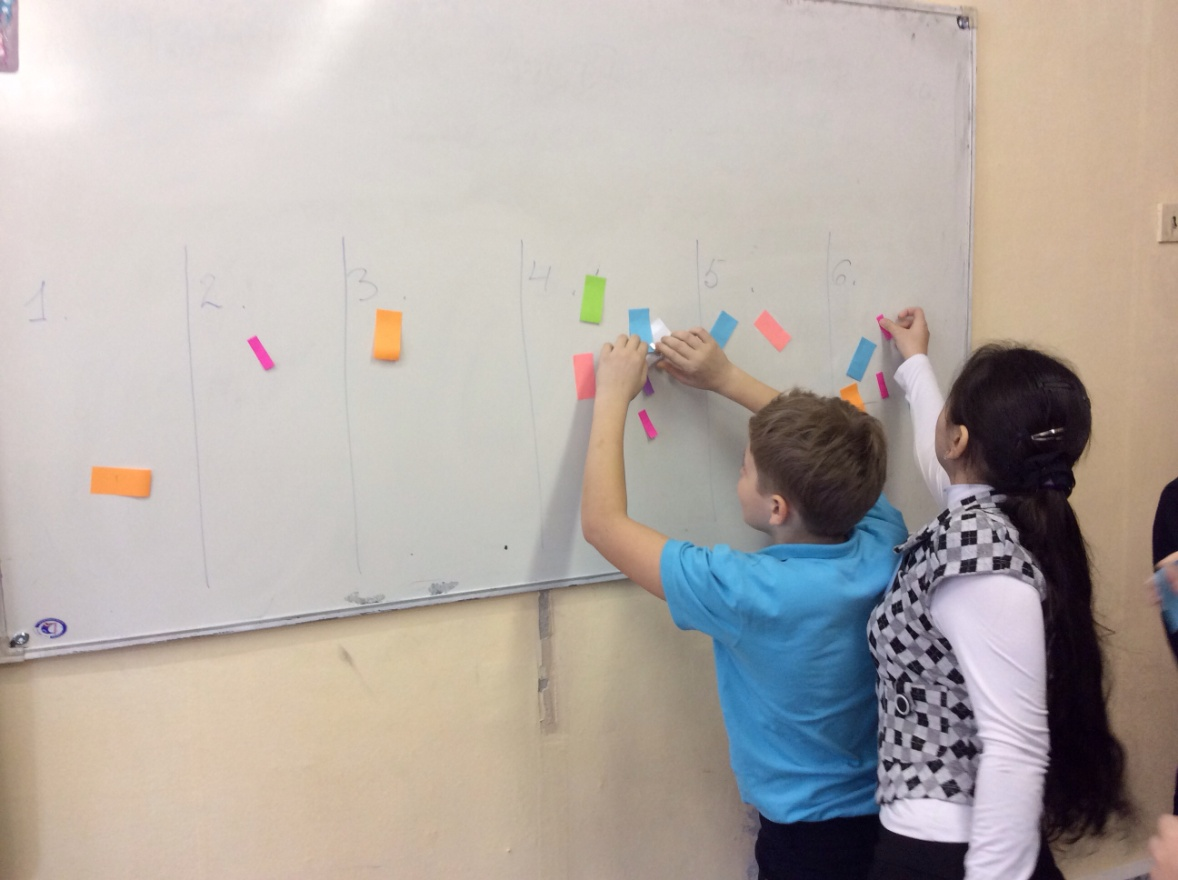 1. 2. 3. 4. 5. 6.